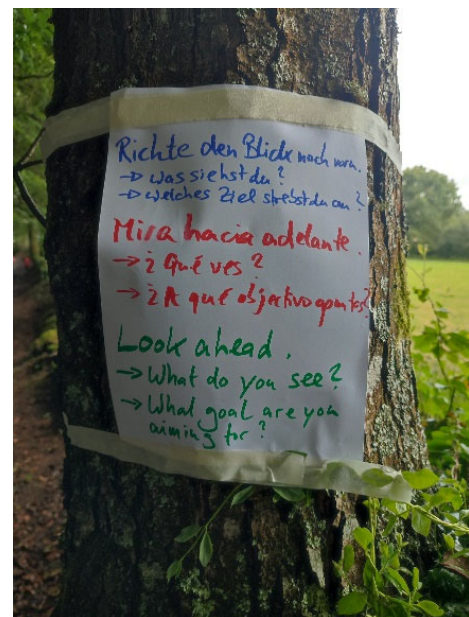 Richte den Blick nach vorn.
→ was siehst du?
→ welches Ziel strebst du an?
Mira hacia adelante.
→ ¿Qué ves?
→ ¿A qué objectivo apuntas?
Look ahead.
→ What do you see?
→ What goal are you
aiming for?